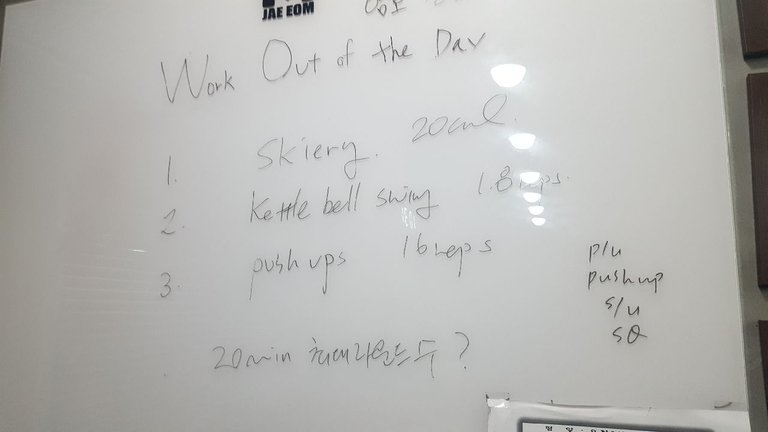 JAE EOM
Work Out of the Day
1. Skierg. 20cal.
2. Kettle bell swing 18 reps.
3. push ups 16 reps
p/u
pushup
s/u
SQ
20min 최대라운드 수 ?